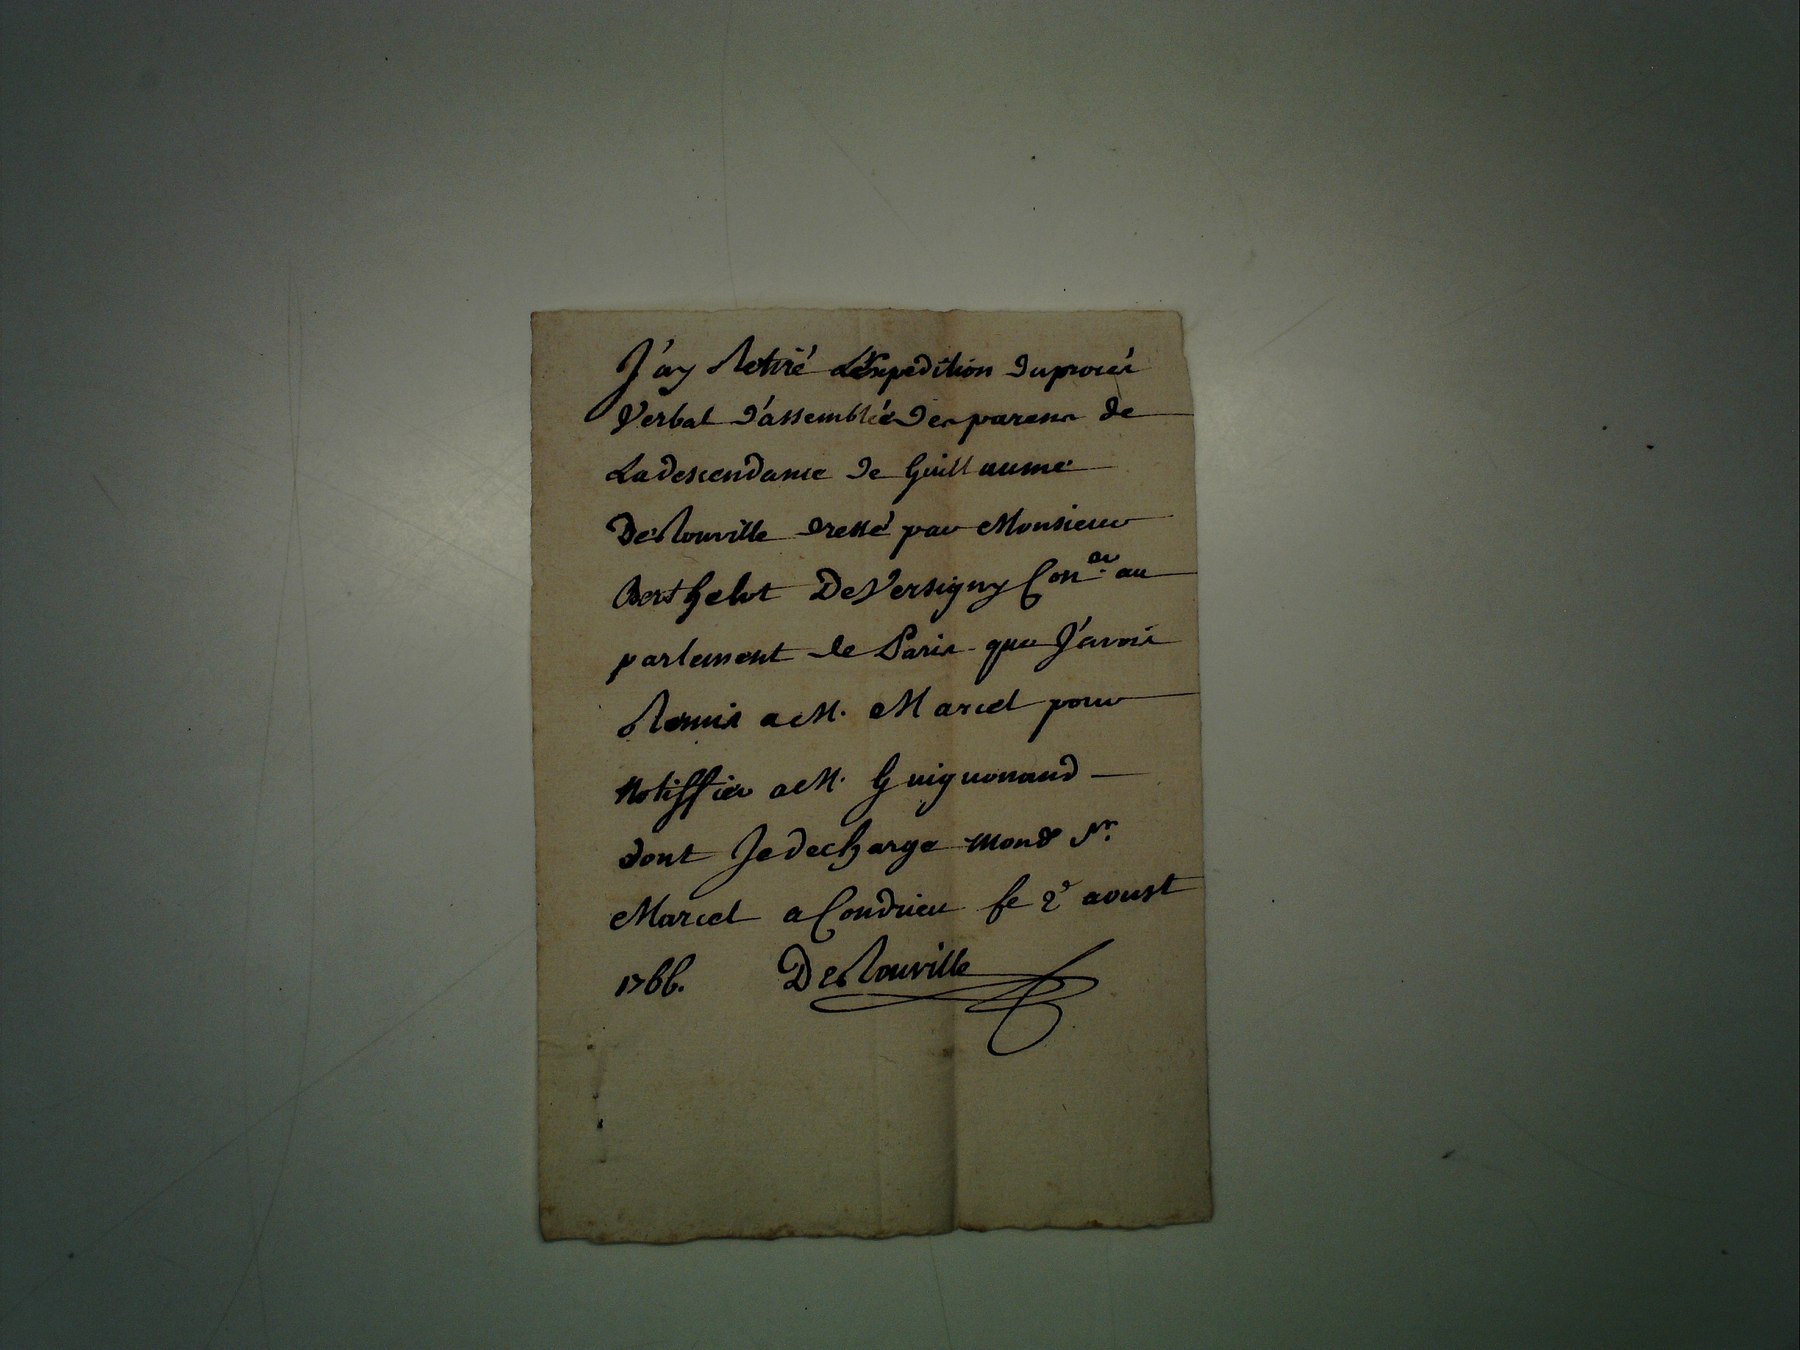 J'ay Retiré L'expedition du procés
Verbal d'assemblée des parens de
La descendance de Guillaume
De Rouville dressé par Monsieur
Berthelot De Versigny Con.er au
parlement de Paris que J'avois
Remis a M. Marcel pour
Notiffier a M. Guignonand
dont Je decharge mond Sr.
Marcel a Condrieu le 2e aoust
1766. De Rouville